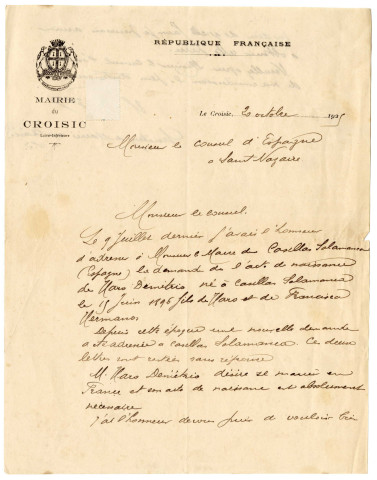 RÉPUBLIQUE FRANÇAISE
MAIRIE
du
CROISIC
Loire-Inférieure
Le Croisic, 2 octobre 1925
Monsieur le consul d'Espagne
a Saint Nazaire
Monsieur le consul.
Le 9 Juillet dernier j'avais l'honneur
d'adresser à Monsieur le Maire de Casillas Salamanca
(Espagne) la demande de l'acte de naissance
de Haro Demetrio né à Casillas Salamanca
le 15 Juin 1896 fils de Haro et de Francisca
Hermanos
Depuis cette époque une nouvelle demande
a adressée a Casillas Salamanca. Ces deux
lettres sont restées sans réponse
M. Haro Demetrio désire se marier en
France et son acte de naissance est absolument
nécessaire
J'ai l'honneur de vous prier de vouloir bien